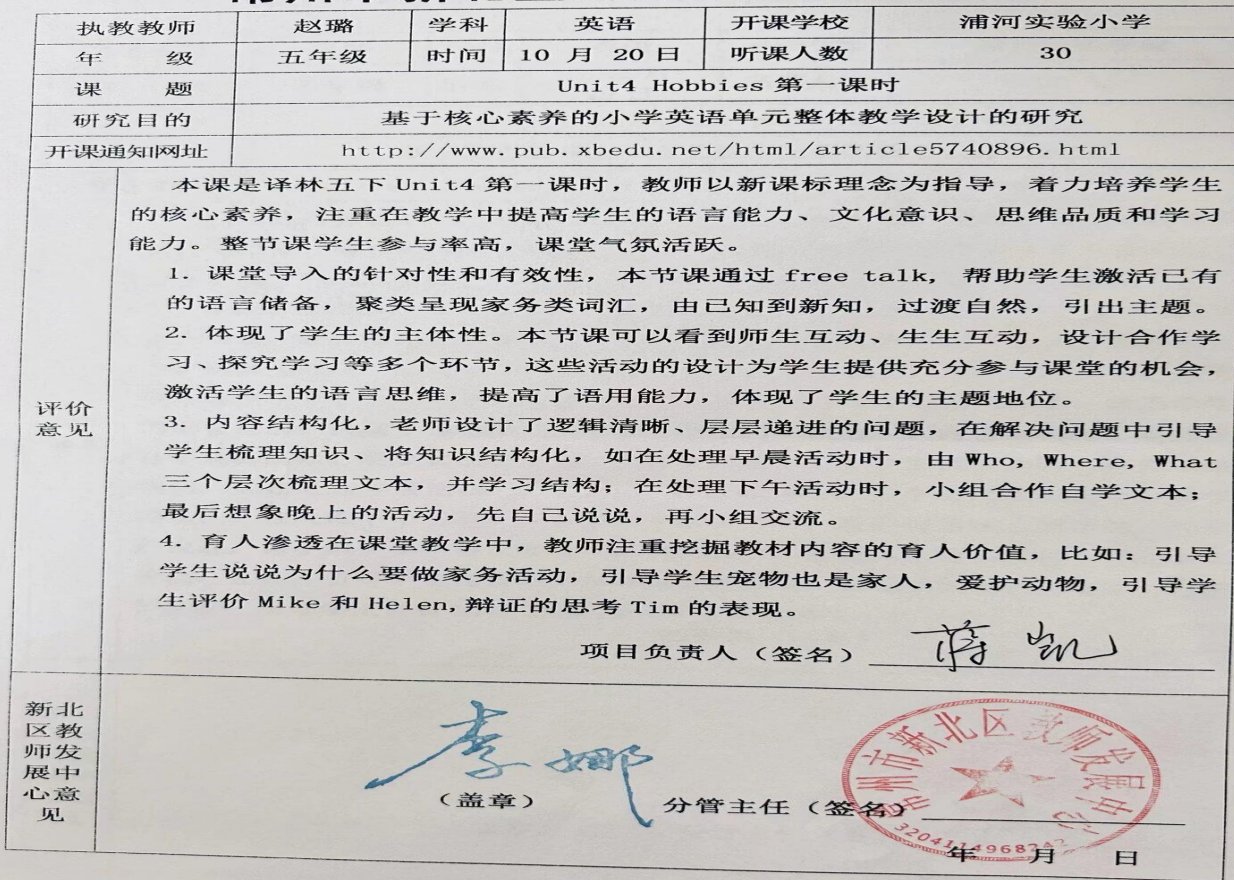 执教教师 赵璐 学科 英语 开课学校 浦河实验小学
年 级 五年级 时间 10 月 20 日 听课人数 30
课 题 Unit4 Hobbies 第一课时
研究目的 基于核心素养的小学英语单元整体教学设计的研究
开课通知网址 http://www.pub.xbedu.net/html/article5740896.html
本课是译林五下 Unit4 第一课时，教师以新课标理念为指导，着力培养学生
的核心素养，注重在教学中提高学生的语言能力、文化意识、思维品质和学习
能力。整节课学生参与率高，课堂气氛活跃。
1. 课堂导入的针对性和有效性，本节课通过 free talk, 帮助学生激活已有
的语言储备，聚类呈现家务类词汇，由已知到新知，过渡自然，引出主题。
2. 体现了学生的主体性。本节课可以看到师生互动、生生互动，设计合作学
习、探究学习等多个环节，这些活动的设计为学生提供充分参与课堂的机会，
激活学生的语言思维，提高了语用能力，体现了学生的主题地位。
3. 内容结构化，老师设计了逻辑清晰、层层递进的问题，在解决问题中引导
学生梳理知识、将知识结构化，如在处理早晨活动时，由 Who, Where, What
三个层次梳理文本，并学习结构；在处理下午活动时，小组合作自学文本；
最后想象晚上的活动，先自己说说，再小组交流。
4. 育人渗透在课堂教学中，教师注重挖掘教材内容的育人价值，比如：引导
学生说说为什么要做家务活动，引导学生宠物也是家人，爱护动物，引导学
生评价 Mike 和 Helen,辩证的思考 Tim 的表现。
评价
意见
项目负责人（签名） 蒋凯
新北
区教
师发
展中
心意
见
李娜
（盖章） 分管主任（签名）
常州市新北区教师发展中心
3204114968242
年 月 日